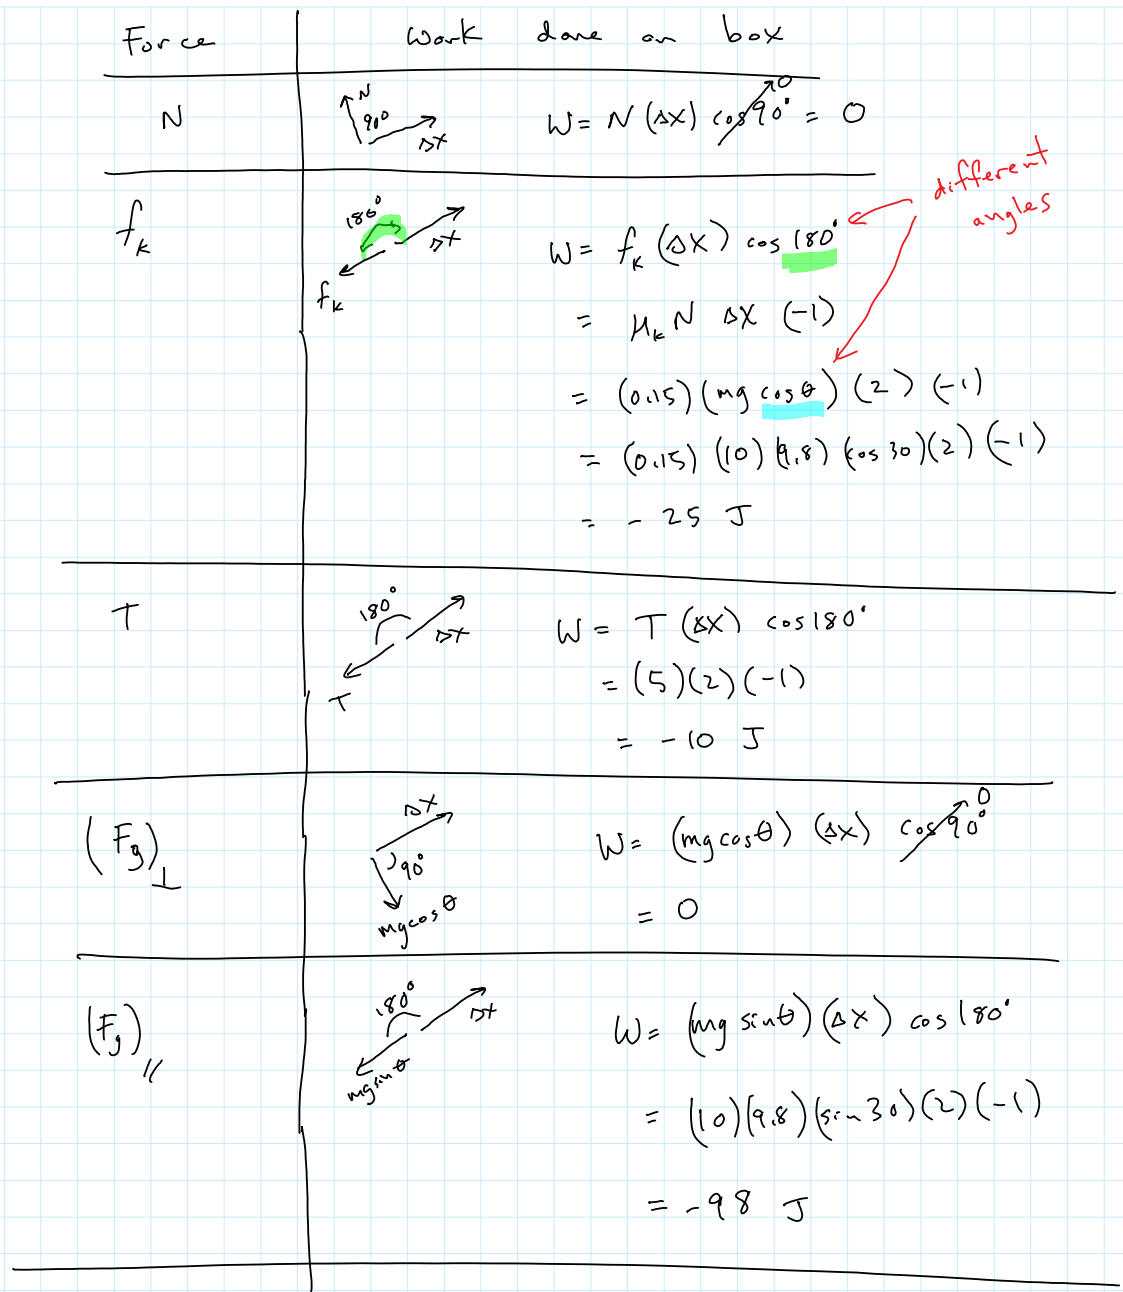 Force work done on box
N
N
90°
Δx
W = N (Δx) cos 90° = 0
0
different
angles
f_k
180°
Δx
f_k
W = f_k (Δx) cos 180°
= μ_k N Δx (-1)
= (0.15) (mg cos θ) (2) (-1)
= (0.15) (10) (9.8) (cos 30) (2) (-1)
= - 25 J
T
180°
Δx
T
W = T (Δx) cos 180°
= (5) (2) (-1)
= -10 J
(F_g)_⊥
Δx
90°
mg cos θ
W = (mg cos θ) (Δx) cos 90°
0
= 0
(F_g)_//
180°
Δx
mg sin θ
W = (mg sin θ) (Δx) cos 180°
= (10) (9.8) (sin 30) (2) (-1)
= -98 J